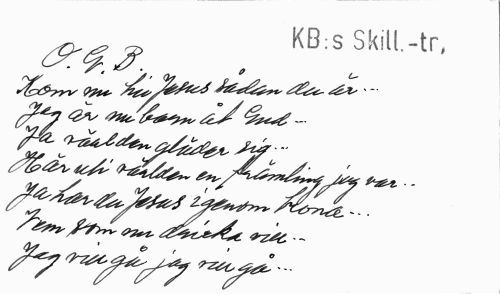 KB:s Skill.-tr,
O. G. B.
Kom nu hit Jesus sådan du är...
Jag är nu barn åt Gud –
Ja världen gläder sig...
Här uti världen en främling jag var..
Ja har du Jesus igenom korna...
Vem som nu dricka vill..
Jag vill gå jag vill gå...